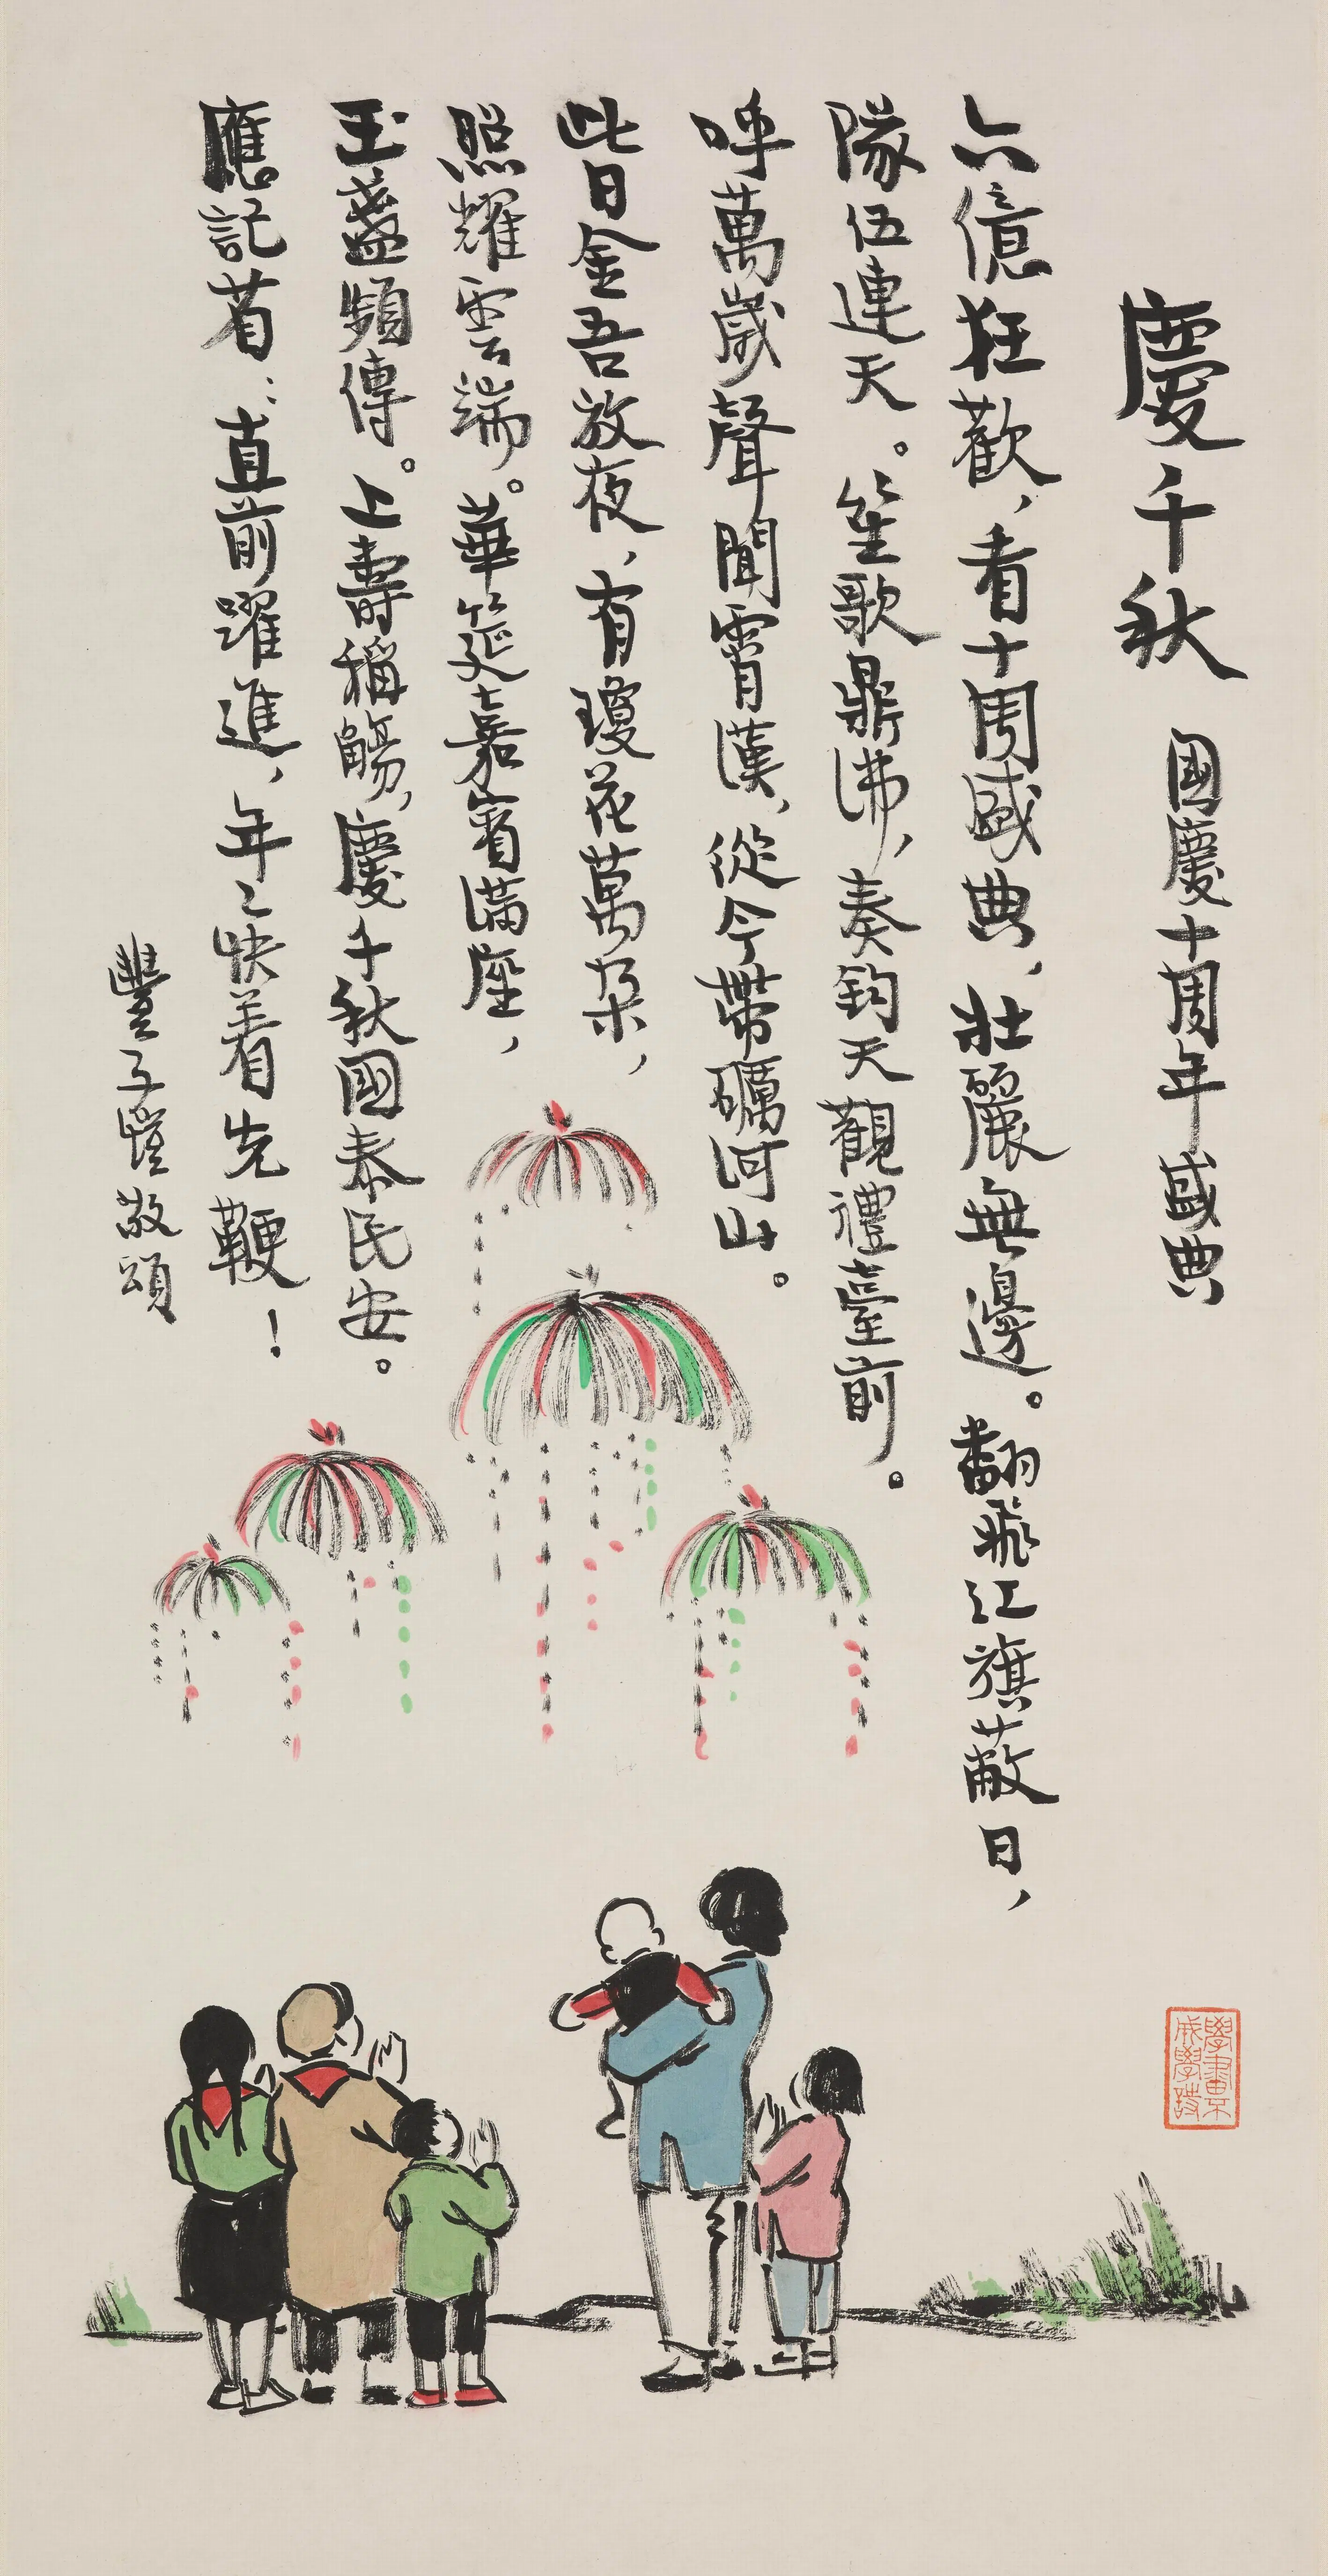 慶千秋 國慶十周年盛典
六億狂歡，看十周盛典、壯麗無邊。翻飛紅旗蔽日，
隊伍連天。笙歌鼎沸，奏鈞天觀禮臺前。
呼萬歲聲聞霄漢，從今帶礪河山。
此日金吾放夜，有瓊花萬朵，
照耀雲端。華筵嘉賓滿座，
玉盞頻傳。上壽稱觴，慶千秋國泰民安。
應記省：直前躍進，年〻快着先鞭！
豐子愷敬頌
學畫不
成學詩